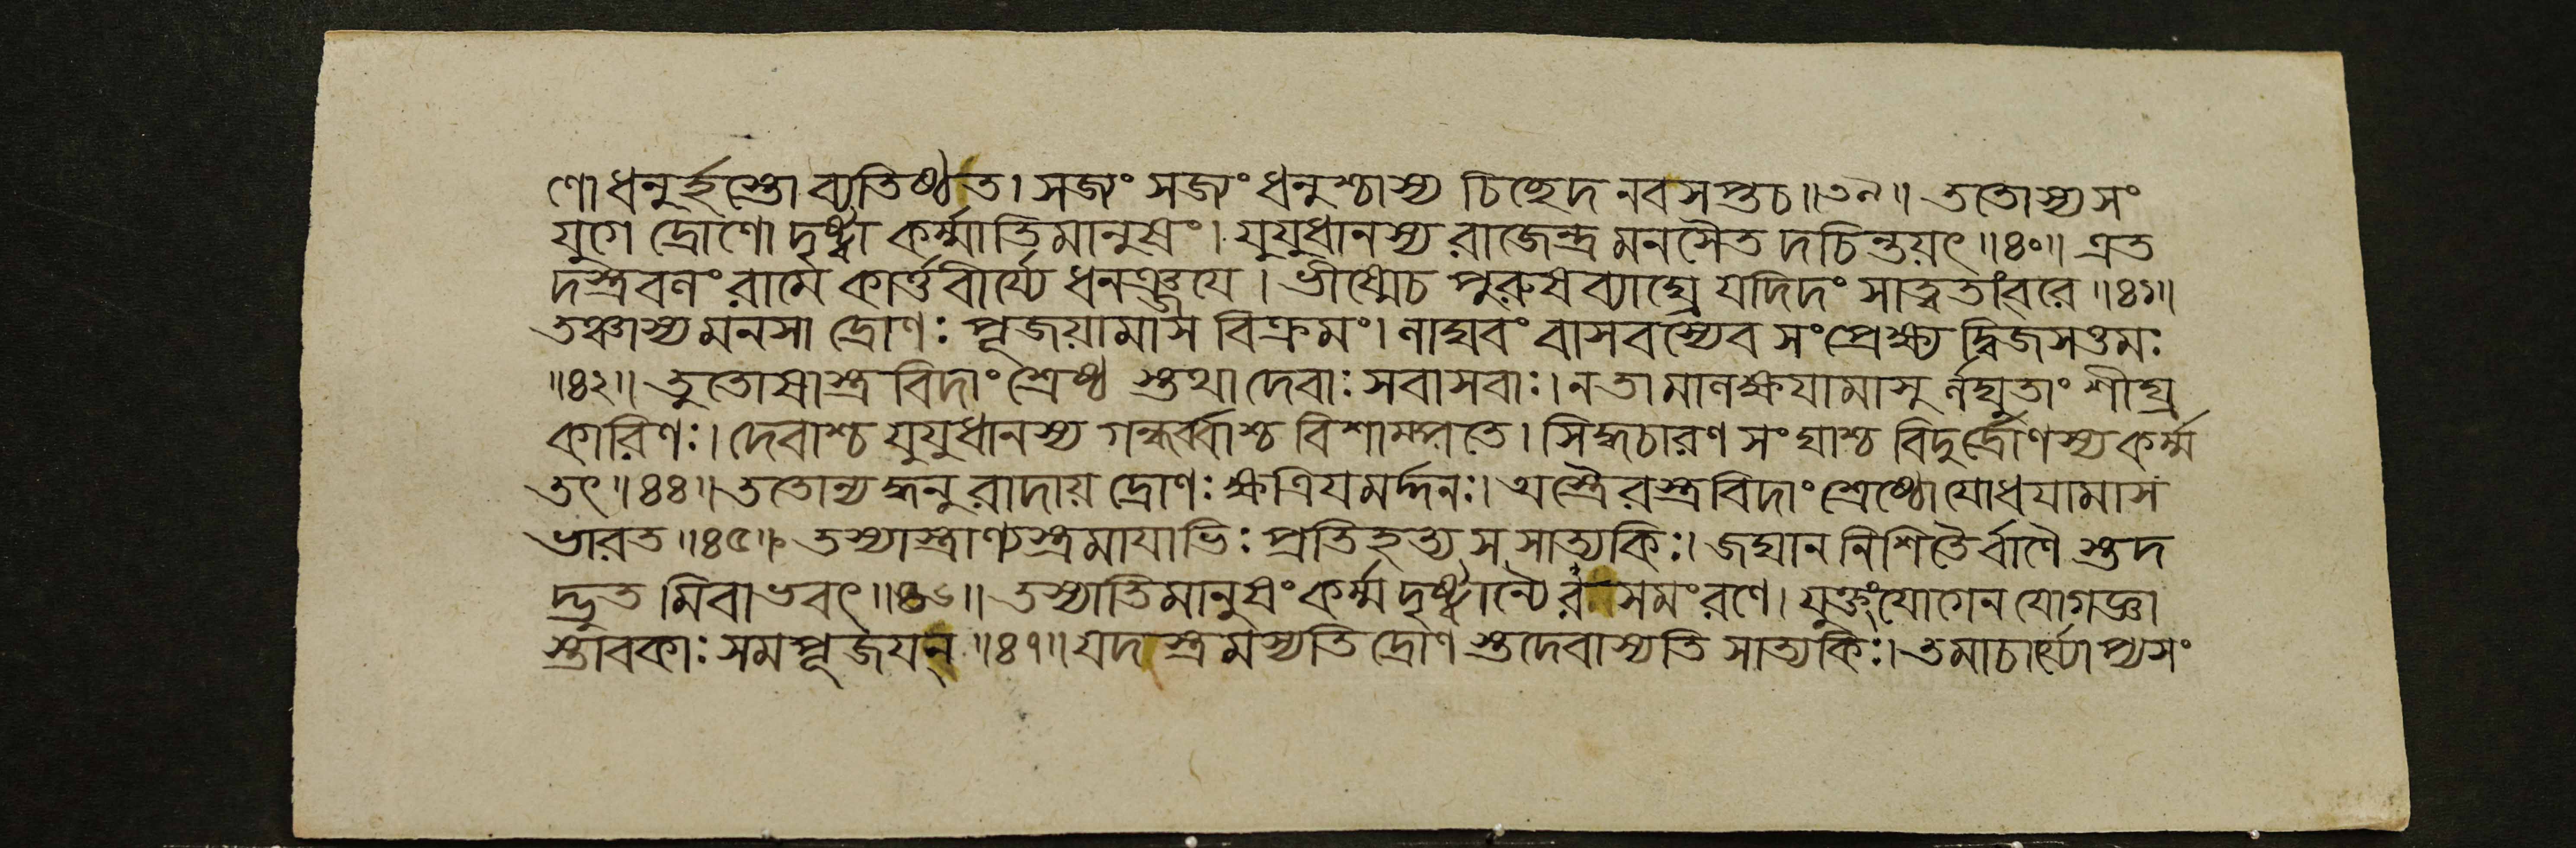 ণো ধনুর্হস্তো ব্যতিষ্ঠত। সজ্যং সজ্যং ধনুশ্চাস্য চিচ্ছেদ নবসপ্তচ॥৩৯॥ ততোস্যসং
যুগে দ্রোণো দৃষ্ট্বা কর্ম্মাতিমানুষং। যুযুধানস্য রাজেন্দ্র মনসৈত দচিন্তয়ৎ॥৪০॥ এত
দস্ত্রবণং রামে কার্ত্তবীর্য্যে ধনঞ্জযে। ভীষ্মেচ পুরুষব্যাঘ্রে যদিদং সাত্বতাংবরে॥৪১॥
তঞ্চাস্য মনসা দ্রোণঃ পূজয়ামাস বিক্রমং। ণাঘবং বাসবস্যেব সংপ্রেক্ষ্য দ্বিজসত্তমঃ
॥৪২॥ তুতোষাস্ত্রবিদাং শ্রেষ্ঠ স্তথা দেবাঃ সবাসবাঃ। ন তা মাণক্ষযামাসু র্নঘুতাং শীঘ্র
কারিণঃ। দেবাশ্চ যুযুধানস্য গন্ধর্ব্বাশ্চ বিশাম্পতে। সিদ্ধচারণ সংঘাশ্চ বিদুর্দ্রোণস্য কর্ম্ম
তৎ॥৪৪॥ ততোন্য দ্ধনু রাদায় দ্রোণঃ ক্ষত্রিযমর্দ্দনঃ। অস্ত্রৈরস্ত্রবিদাং শ্রেষ্ঠো যোধযামাস
ভারত॥৪৫॥ তস্যাস্ত্রাণ্যস্ত্রমাযাভিঃ প্রতিহত্য স সাত্যকিঃ। জঘান নিশিতৈর্বাণৈ স্তদ
দ্ভুত মিবাভবৎ॥৪৬॥ তস্যাতিমানুষং কর্ম্ম দৃষ্ট্বান্যৈর সমংরণে। যুক্তংযোগেন যোগজ্ঞা
স্তাবকাঃ সমপূজযন্॥৪৭॥ যদস্ত্রমস্যতি দ্রোণ স্তদেবাস্যতি সাত্যকিঃ। তমাচার্য্যোপ্যসং